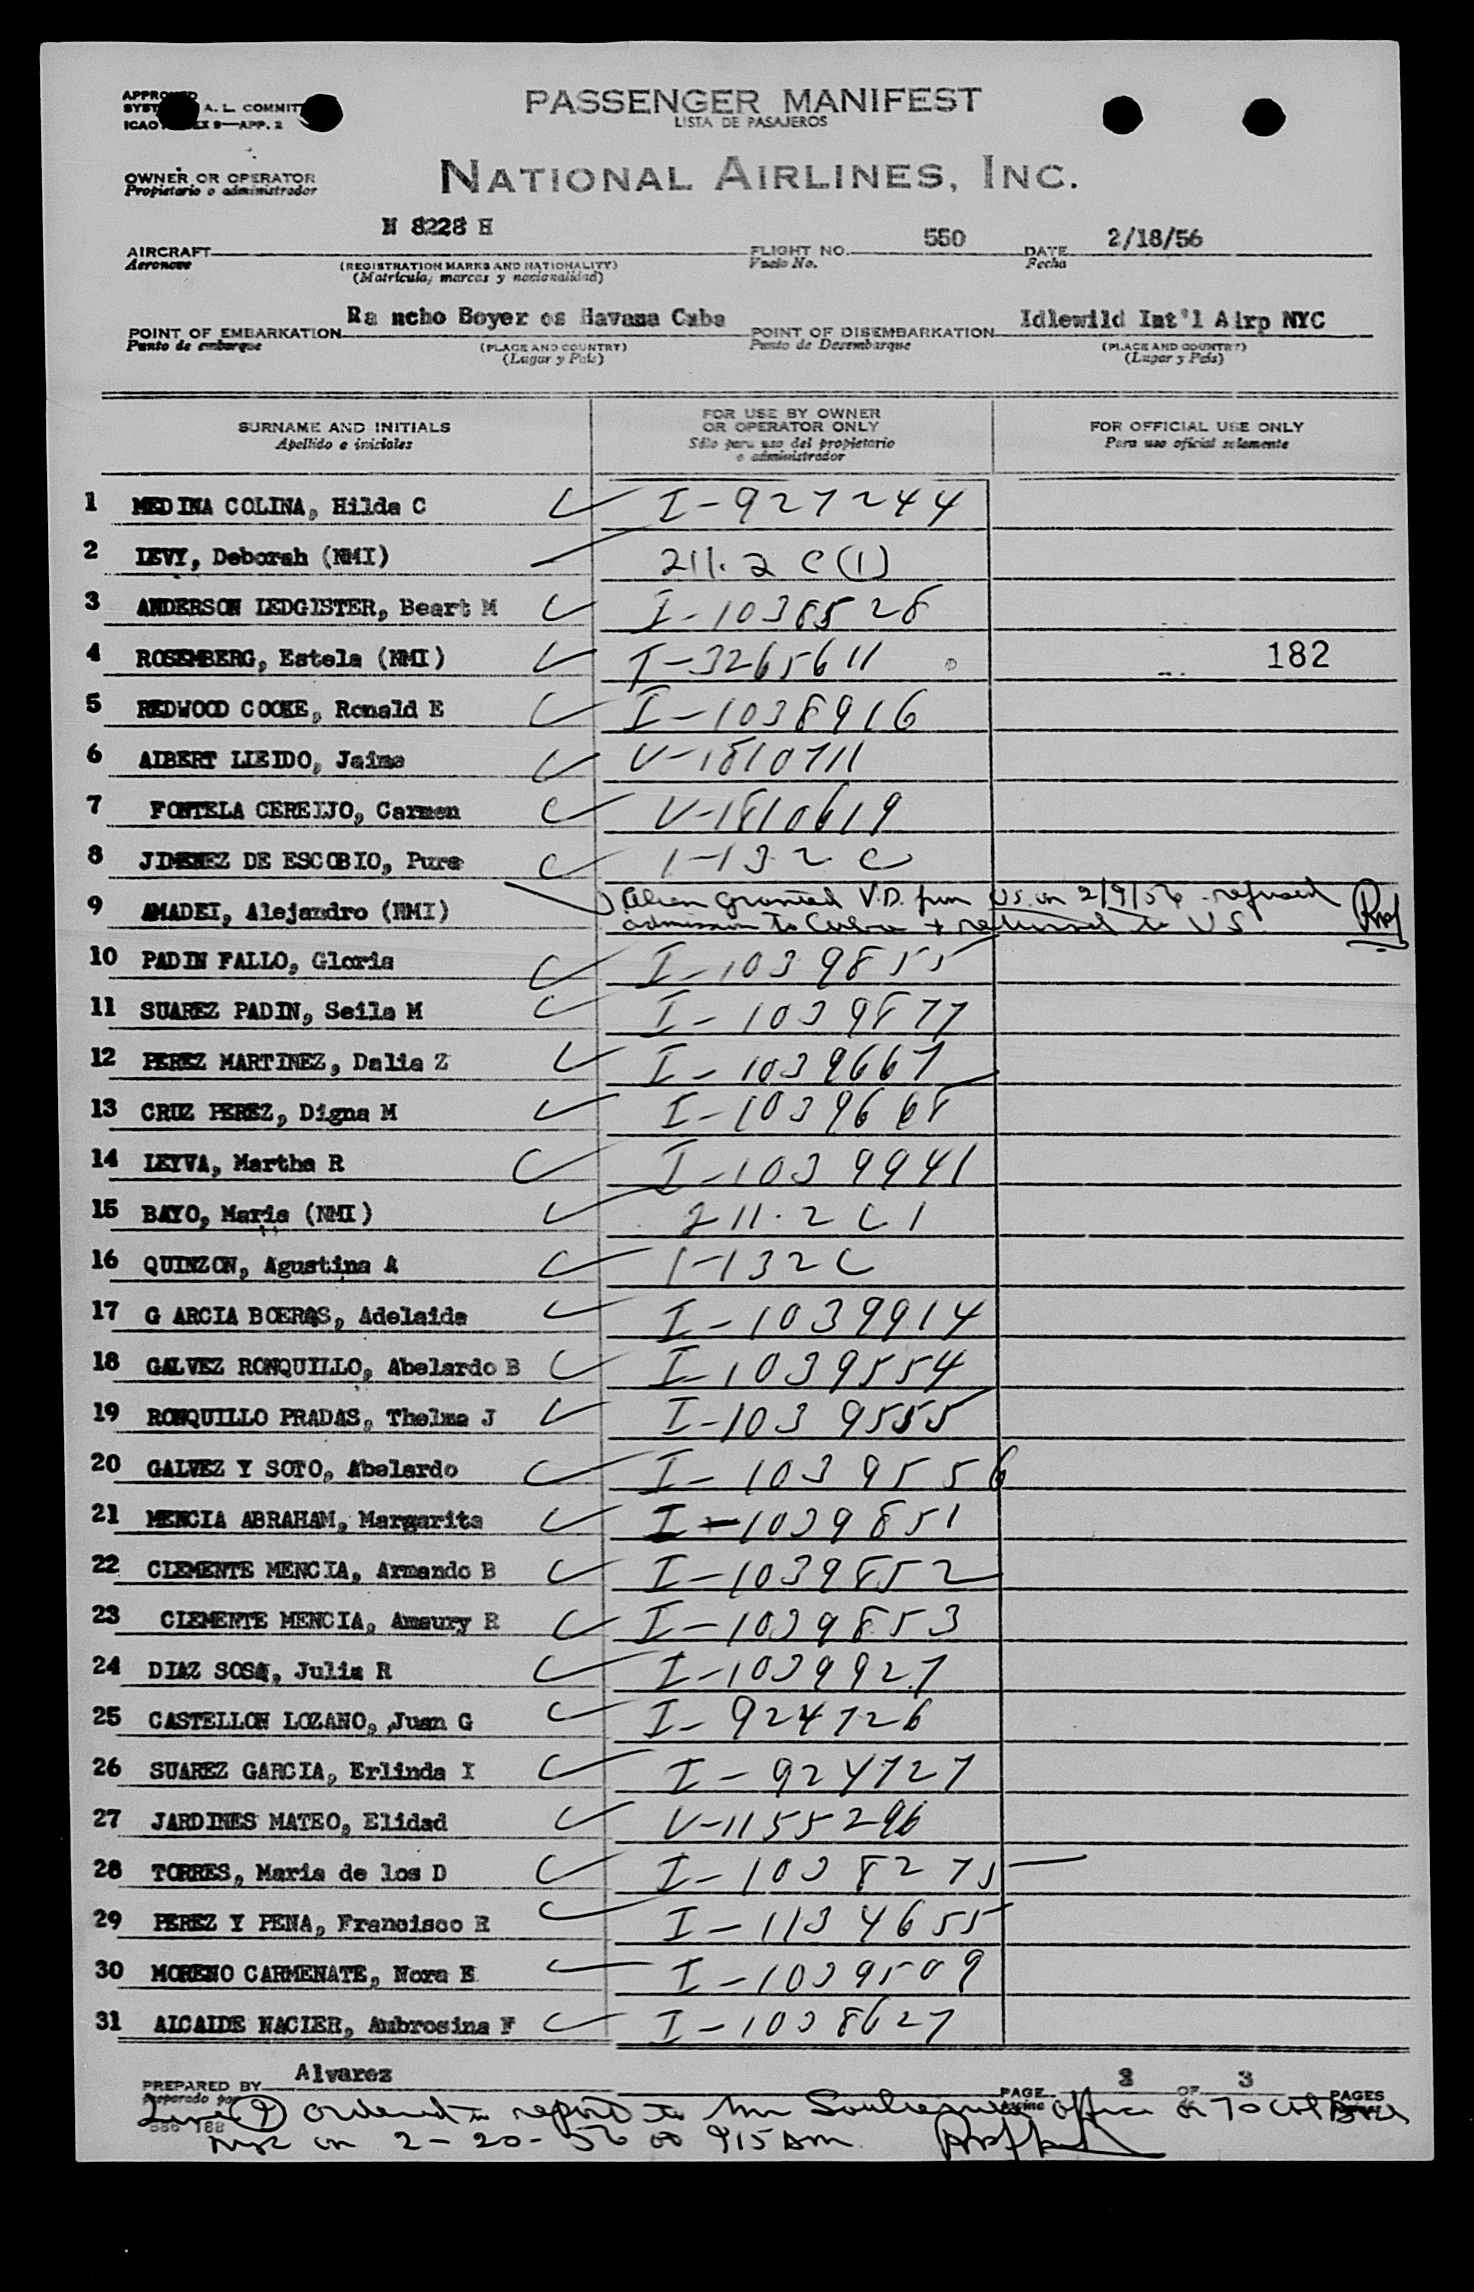 APPROVED
SYST A. L. COMMIT
ICAO EX 9—APP. 2
PASSENGER MANIFEST
LISTA DE PASAJEROS
OWNER OR OPERATOR
Propietario o administrador
NATIONAL AIRLINES, INC.
AIRCRAFT N 8228 H FLIGHT NO. 550 DATE 2/18/56
Aeronave (REGISTRATION MARKS AND NATIONALITY) Vuelo No. Fecha
(Matrícula, marcas y nacionalidad)
POINT OF EMBARKATION Ra ncho Boyer os Havana Cuba POINT OF DISEMBARKATION Idlewild Int'l Airp NYC
Punto de embarque (PLACE AND COUNTRY) Punto de Desembarque (PLACE AND COUNTRY)
(Lugar y País) (Lugar y País)
SURNAME AND INITIALS FOR USE BY OWNER OR OPERATOR ONLY FOR OFFICIAL USE ONLY
Apellido e iniciales Sólo para uso del propietario o administrador Para uso oficial solamente
1 MEDINA COLINA, Hilda C I-927244
2 LEVY, Deborah (NMI) 211.2 C(1)
3 ANDERSON LEDGISTER, Beart M I-1038528
4 ROSEMBERG, Estela (NMI) I-3265611 182
5 REDWOOD COOKE, Ronald E I-1038916
6 ALBERT LLEIDO, Jaime V-1810711
7 FONTELA CEREIJO, Carmen V-1810619
8 JIMENEZ DE ESCOBIO, Pura 1-132 C
9 AMADEI, Alejandro (NMI) Alien granted V.D. from US. on 2/9/56 - refused
admission to Cuba + returned to US
10 PADIN FALLO, Gloria I-1039855
11 SUAREZ PADIN, Seila M I-1039877
12 PEREZ MARTINEZ, Dalia Z I-1039667
13 CRUZ PEREZ, Digna M I-1039668
14 LEYVA, Martha R I-1039941
15 BAYO, Maria (NMI) 211.2 C 1
16 QUINZON, Agustina A 1-132 C
17 G ARCIA BOERAS, Adelaida I-1039914
18 GALVEZ RONQUILLO, Abelardo B I-1039554
19 RONQUILLO PRADAS, Thelma J I-1039555
20 GALVEZ Y SOTO, Abelardo I-1039556
21 MENCIA ABRAHAM, Margarita I-1039851
22 CLEMENTE MENCIA, Armando B I-1039852
23 CLEMENTE MENCIA, Amaury R I-1039853
24 DIAZ SOSA, Julia R I-1039927
25 CASTELLON LOZANO, Juan G I-924726
26 SUAREZ GARCIA, Erlinda I I-924727
27 JARDINES MATEO, Elidad V-1155296
28 TORRES, Maria de los D I-1038275
29 PEREZ Y PENA, Francisco R I-1134655
30 MORENO CARMENATE, Nora E I-1039509
31 ALCAIDE NACIER, Ambrosina F I-1038627
PREPARED BY Alvarez PAGE 2 OF 3 PAGES
Preparado por
Line (9) ordered to report to office 70 Col
586 188
NYC on 2-20-56 at 915 AM